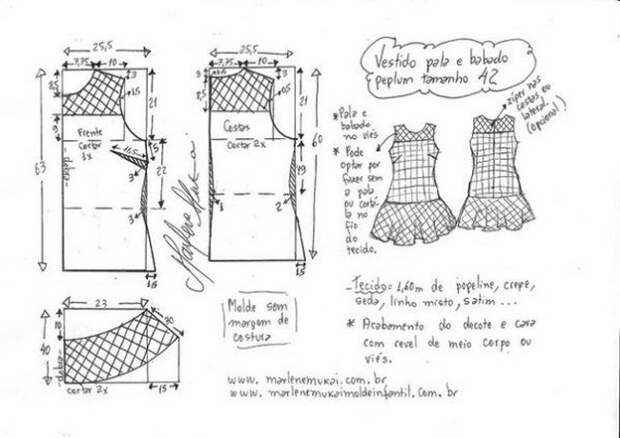 Vestido pala e babado
peplum tamanho 42
25,5
7,75
10
3
8,5
1,5
21
9
Frente
Cortar 1x
63
-dobra-
11,5
5
3
22
3
1,5
25,5
7,75
10
3
8,5
0,5
21
Costas
Cortar 2x
60
19
1
2
1,5
Marlene Mukai
* Pala e
babado
no
viés
* Pode
optar por
fazer sem
a pala
ou cortá-
la no
fio
do
tecido.
zíper nas
costas ou
lateral.
(opcional)
23
10
30
40
-dobra-
cortar 2x
15
Molde sem
margem de
costura
_Tecido: 1,60m de popeline, crepe,
seda, linho misto, satim ...
* Acabamento do decote e cava
com revel de meio corpo ou
viés.
www. marlenemukai.com.br
www. marlenemukaimoldeinfantil.com.br